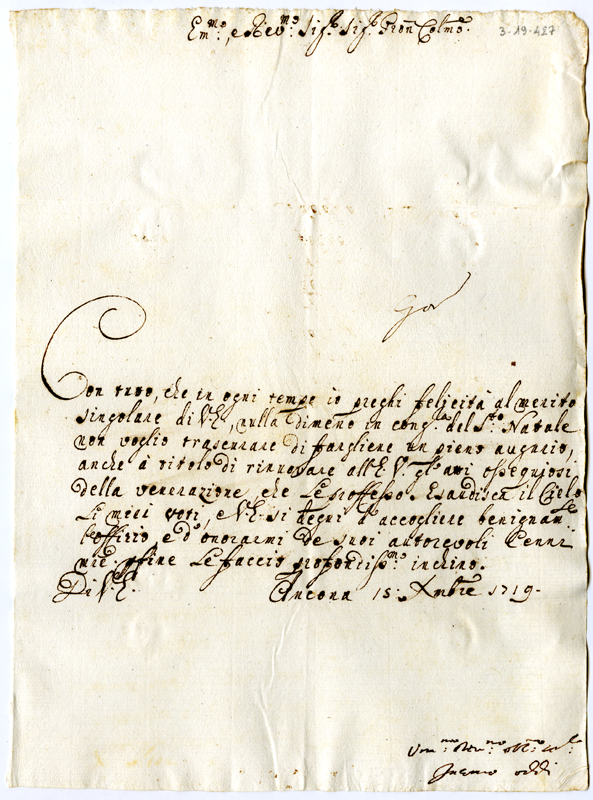 Em.mo, e Rev.mo Sig.r Sig.r Pron Colmo.
3-19-427
Con tuto, che in ogni tempo io preghi felicità al merito
singolare di V.E., nulla dimeno in cong.ra del S.to Natale
non voglio trascurare di fargliene un pieno augurio,
anche à titolo di rinnovare all'E.V. gl'atti ossequiosi
della venerazione, che Le professo. Esaudisca il Cielo
Li miei voti, e V.E. si degni d'accogliere benignam.te
l'offizio e d'onorarmi de suoi autorevoli Cenni
mẽ. Le faccio profondiss.mo inchino.
Di V.E. Ancona 15. Xmbre 1719.
Um.mo
Oddi